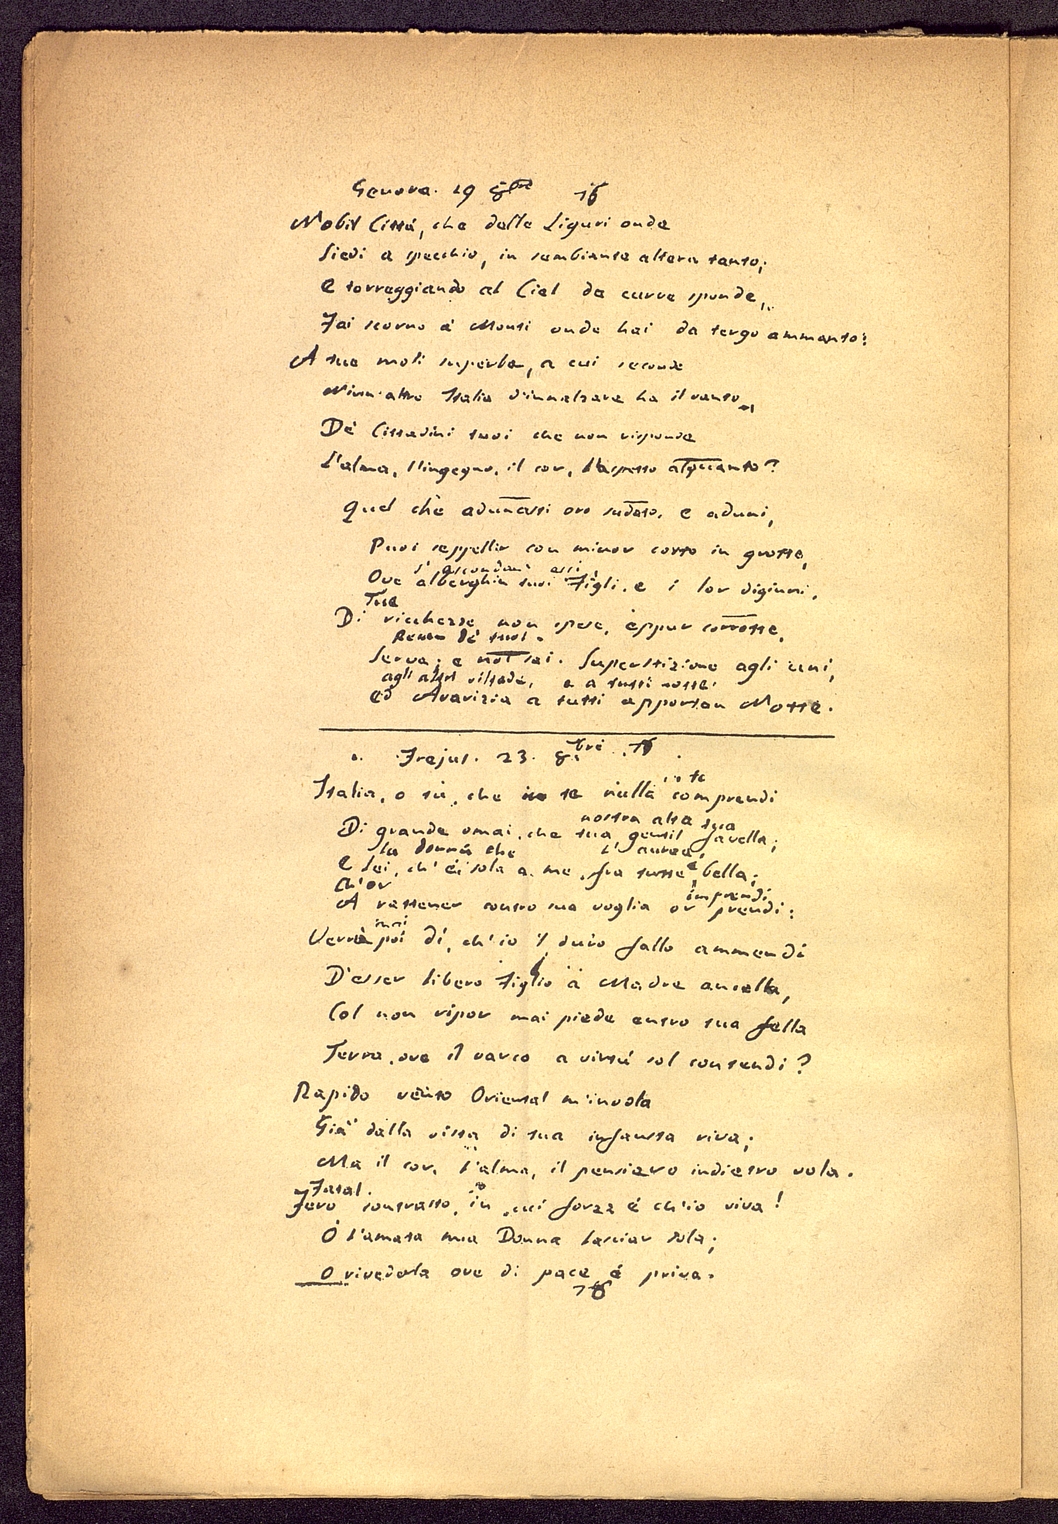 Genova. 19 8bre
Nobil Città, che delle Liguri onde
Siedi a specchio, in sembiante altera tanto;
E torreggiando al Ciel da curve sponde,
Fai scorno a' Monti onde hai da tergo ammanto:
A tue moli superbe, a cui seconde
Niun'altre Italia d'innalzare ha il vanto,
De' Cittadini tuoi che non risponde
L'alma, l'ingegno, il cor, l'aspetto alquanto?
Quel che adunasti oro sudato, e aduni,
Puoi seppellir con minor costo in grotte,
s' ascondon essi,
Ove alberghin tuoi Figli, e i lor digiuni.
Tue
Di ricchezze non spese, eppur corrotte,
Serva; e nol sai. Superstizione agli uni,
agli altri viltade, e a tutti notte.
ed Avarizia a tutti apportan Notte.
Frejus. 23. 8.bre
in te
Italia, o tu, che in te nulla comprendi
nostra alta tua
Di grande omai, che tua gentil favella;
La donna che L' aurea,
E lei, ch'è sola a me fra tutte bella;
Ch'or imprendi
A rattener contro sua voglia or prendi:
mai
Verrà poi dì, ch'io 'l duro fallo ammendi
D'esser libero Figlio a Madre ancella,
Col non ripor mai piede entro tua fella
Terra, ove il varco a virtù sol contendi?
Rapido vento Oriental m'invola
Già dalla vista di tua infausta riva;
Ma il cor, l'alma, il pensiero indietro vola.
Fatal
Fero contrasto, in cui forza è ch'io viva!
O l'amata mia Donna lasciar sola;
O rivederla ove di pace è priva.